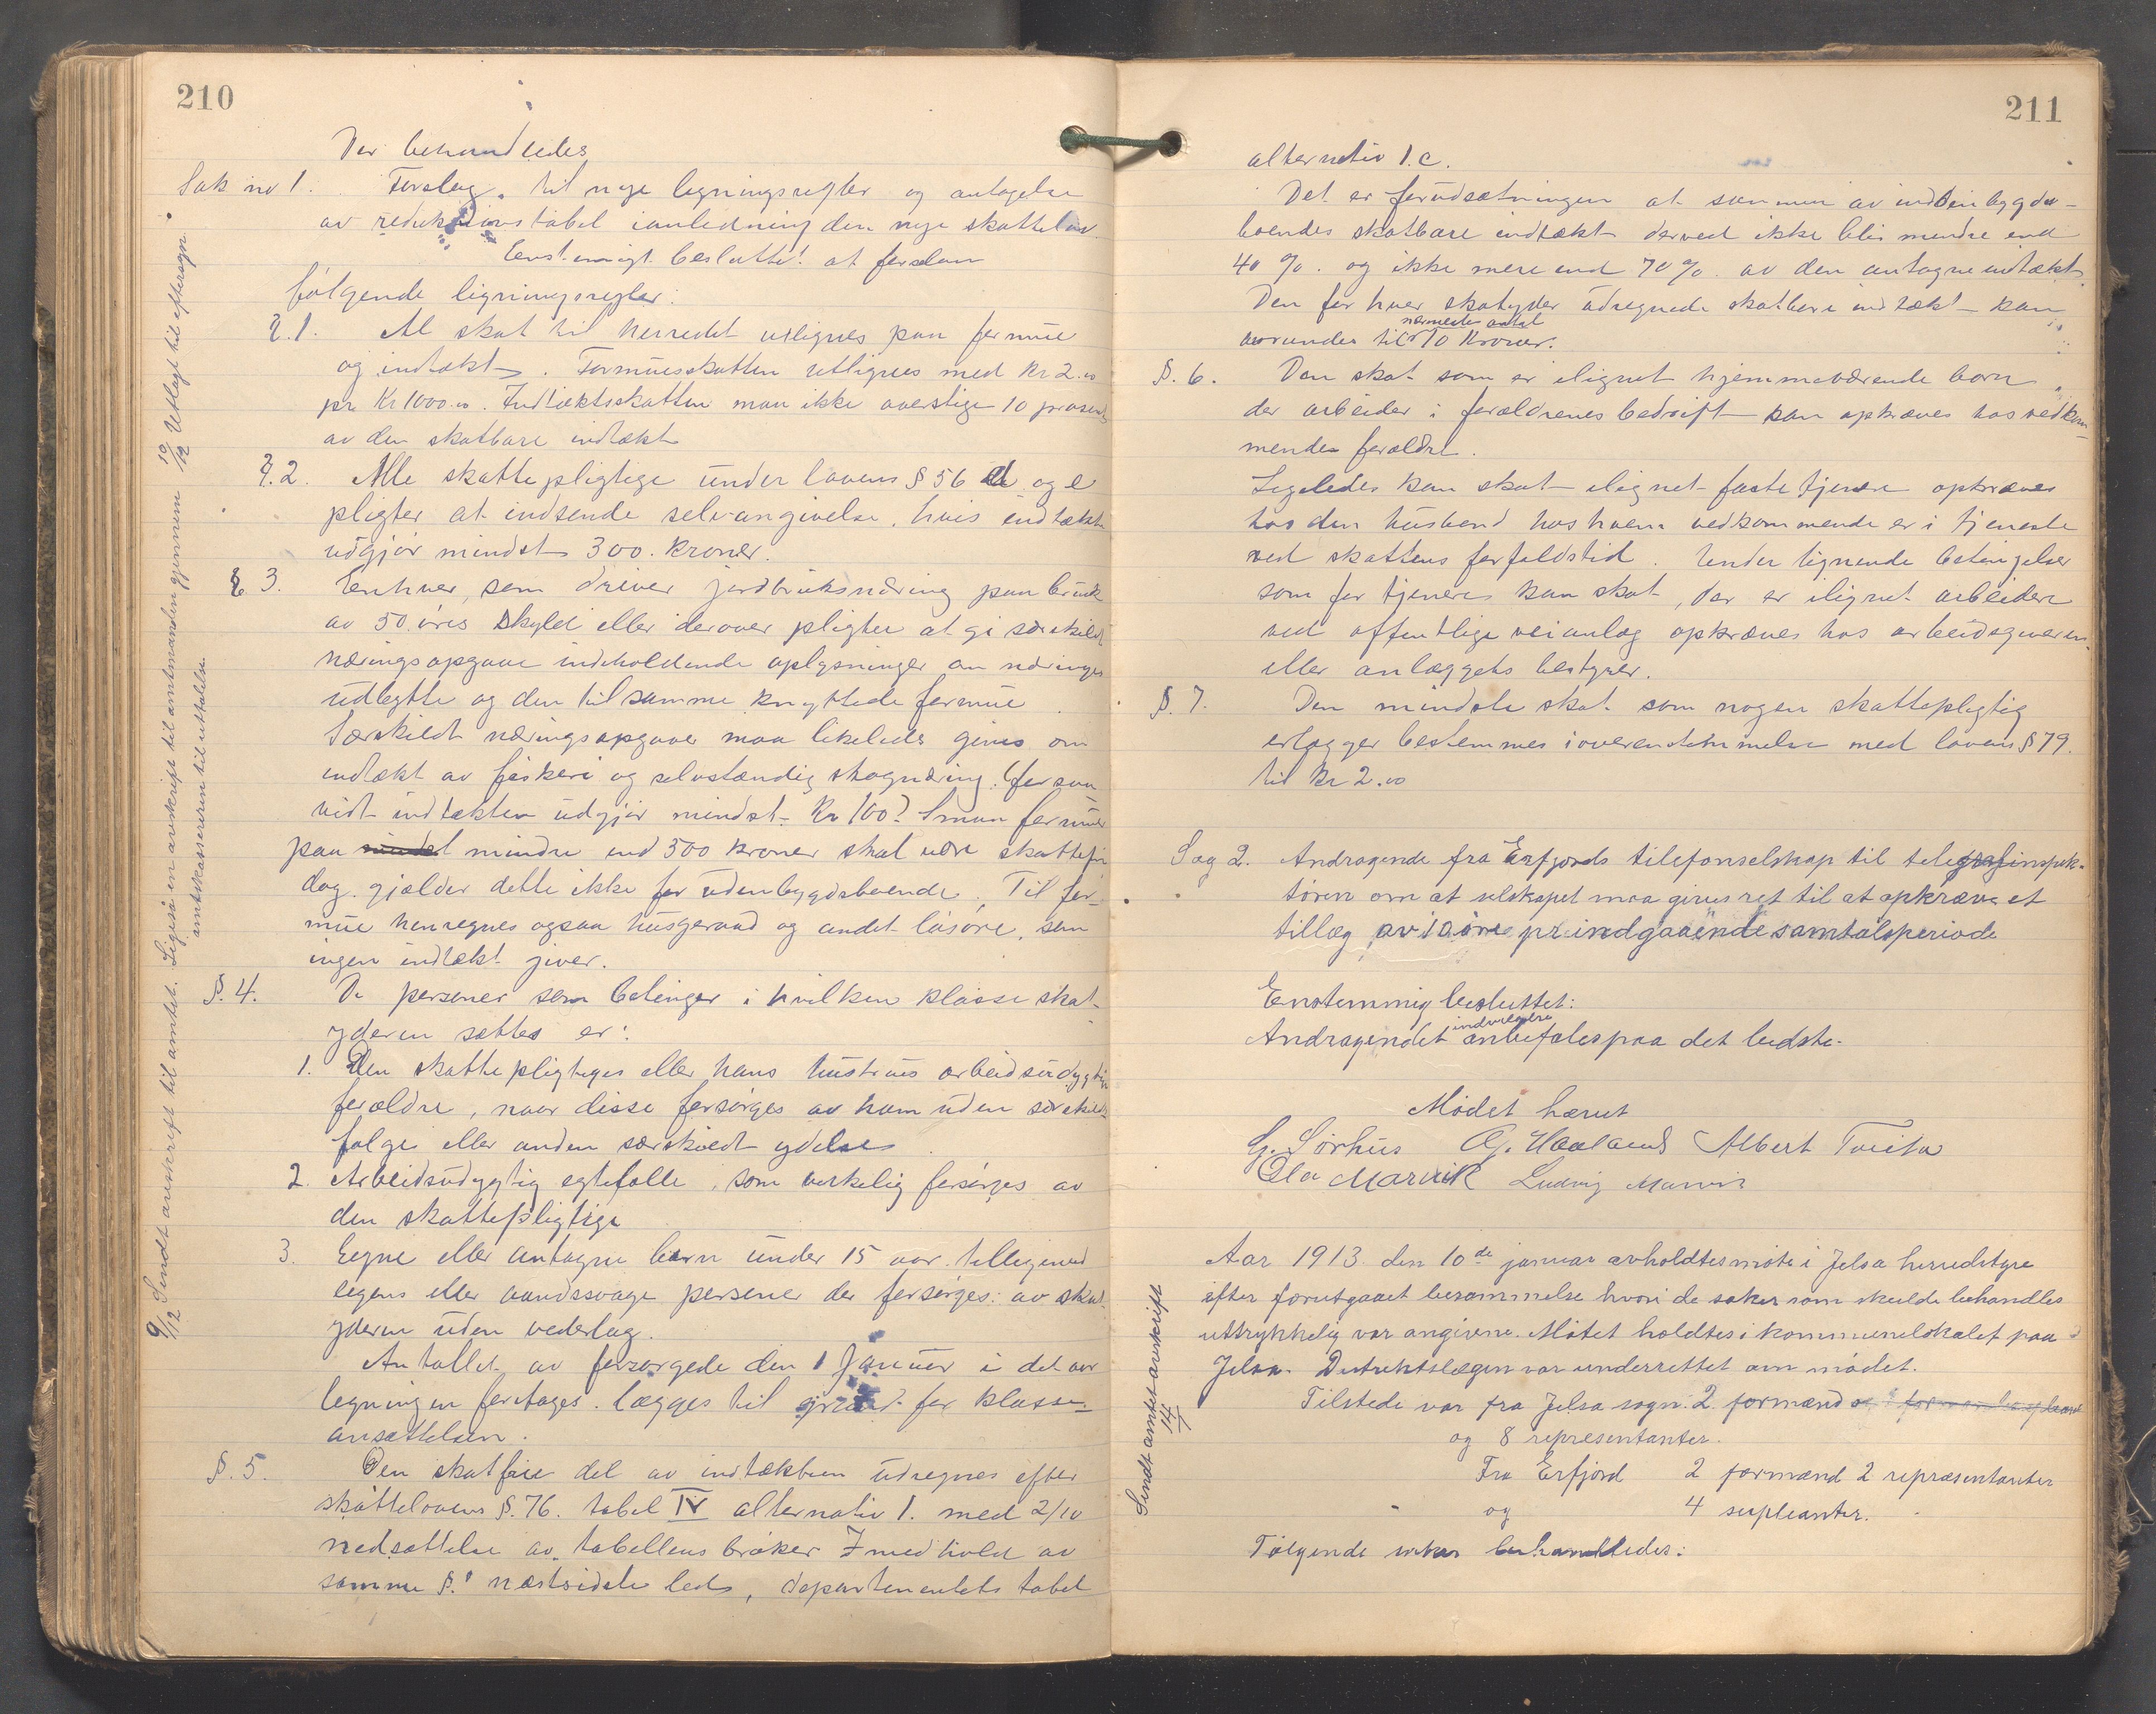 210
Der behandledes
Sak no 1. Forslag til nye ligningsregler og antagelse
av reduktionstabel i anledning den nye skattelov
Enstemmigt besluttet at foreslaa
følgende ligningsregler:
§. 1. Al skat til herredet utlignes paa formue
og indtækt. Formuesskatten utlignes med Kr 2.00
pr. Kr 1000.00. Indtæktsskatten maa ikke overstige 10 prosent
av den skatbare indtækt
§. 2. Alle skattepligtige under lovens § 56 d og e
pligter at indsende selvangivelse, hvis indtækt
udgjør mindst 300. kroner.
§ 3. Enhver, som driver jordbruksnæring paa bruk
av 50 øres skyld eller derover pligter at gi særskildt
næringsopgave indeholdende oplysninger om næringens
udbytte og den til samme knyttede formue
Særskildt næringsopgaver maa likeledes gives om
indtækt av fiskeri og selvstændig skognæring. (forsaa
vidt indtækten udgjør mindst Kr 100) Smaa formuer
paa mindre end 500 kroner skal være skattefri
dog gjælder dette ikke for udenbygdsboende. Til for-
mue henregnes ogsaa husgeraad og andet løsøre, som
ingen indtækt giver.
§. 4. De personer som betinger i hvilken klasse skat-
yderen sættes er:
1. Den skattepligtiges eller hans hustrues arbeidsudygtige
forældre, naar disse forsørges av ham uden særskildt
følge eller anden særskildt ydelse
2. Arbeidsudygtig egtefælle, som virkelig forsørges av
den skattepligtige
3. Eegne eller antagne barn under 15 aar tilligemed
legems eller aandssvage personer der forsørges av skat-
yderen uden vederlag.
Antallet av forsørgede den 1 Januar i det aar
legningen foretages lægges til grund for klasse-
ansættelsen.
§. 5. Den skatfrie del av indtækten udregnes efter
skattelovens §. 76. tabel IV alternativ 1. med 2/10
nedsættelse av tabellens brøker I medhold av
samme §.' næstsidste led, departementets tabel
9/12 Sendt avskrift til amtet. Ligesaa en avskrift til amtmanden gjennem
amtskassereren til uttalelse.
10/12 Utlagt til eftersagn.
211
alternativ 1.c.
Det er forudsætningen at summen av indenbygds-
boendes skatbare indtækt derved ikke blir mindre end
40 %. og ikke mere end 70 %. av den antagne indtækt
Den for hver skatyder udregnede skatbare indtækt kan
nærmeste antal
avrundes til 10 Kroner.
§. 6. Den skat som er ilignet hjemmeværende børn
der arbeider i forældrenes bedrift kan opkræves hos vedkom-
mendes forældre.
Ligeledes kan skat ilignet faste tjenere opkræves
hos den husbond hos hvem vedkommende er i tjeneste
ved skattens forfaldstid. Under lignende betingelser
som for tjenere kan skat, der er ilignet arbeidere
ved offentlige veianlæg opkræves hos arbeidsgiveren
eller anlæggets bestyrer.
§. 7. Den mindste skat som nogen skattepligtig
erlægger bestemmes i overenstemmelse med lovens § 79.
til Kr 2.00
Sag 2. Andragende fra Erfjords tilefonselskap til telegrafinspek-
tøren om at selskapet maa gives ret til at opkræve et
tillæg av 10 øre pr. indgaaende samtalsperiode
Enstemmig besluttet:
indvilgelse
Andragendet anbefales paa det bedste.
Mødet hævet
G. Sørhus G. Haaland Albert Tveita
Ola Marvik Ludvig Marvik
Aar 1913 den 10de januar avholdtes møte i Jelsa herredstyre
efter forutgaaet berammelse hvori de saker som skulde behandles
uttrykkelig var angivene. Møtet holdtes i kommunelokalet paa
Jelsa. Distriktslægen var underrettet om mødet.
Tilstede var fra Jelsa sogn: 2 formænd
og 8 representanter.
Fra Erfjord 2 formænd 2 repræsentanter
og 4 supleanter.
Følgende saker behandledes:
Sendt amtet avskrift
14/1